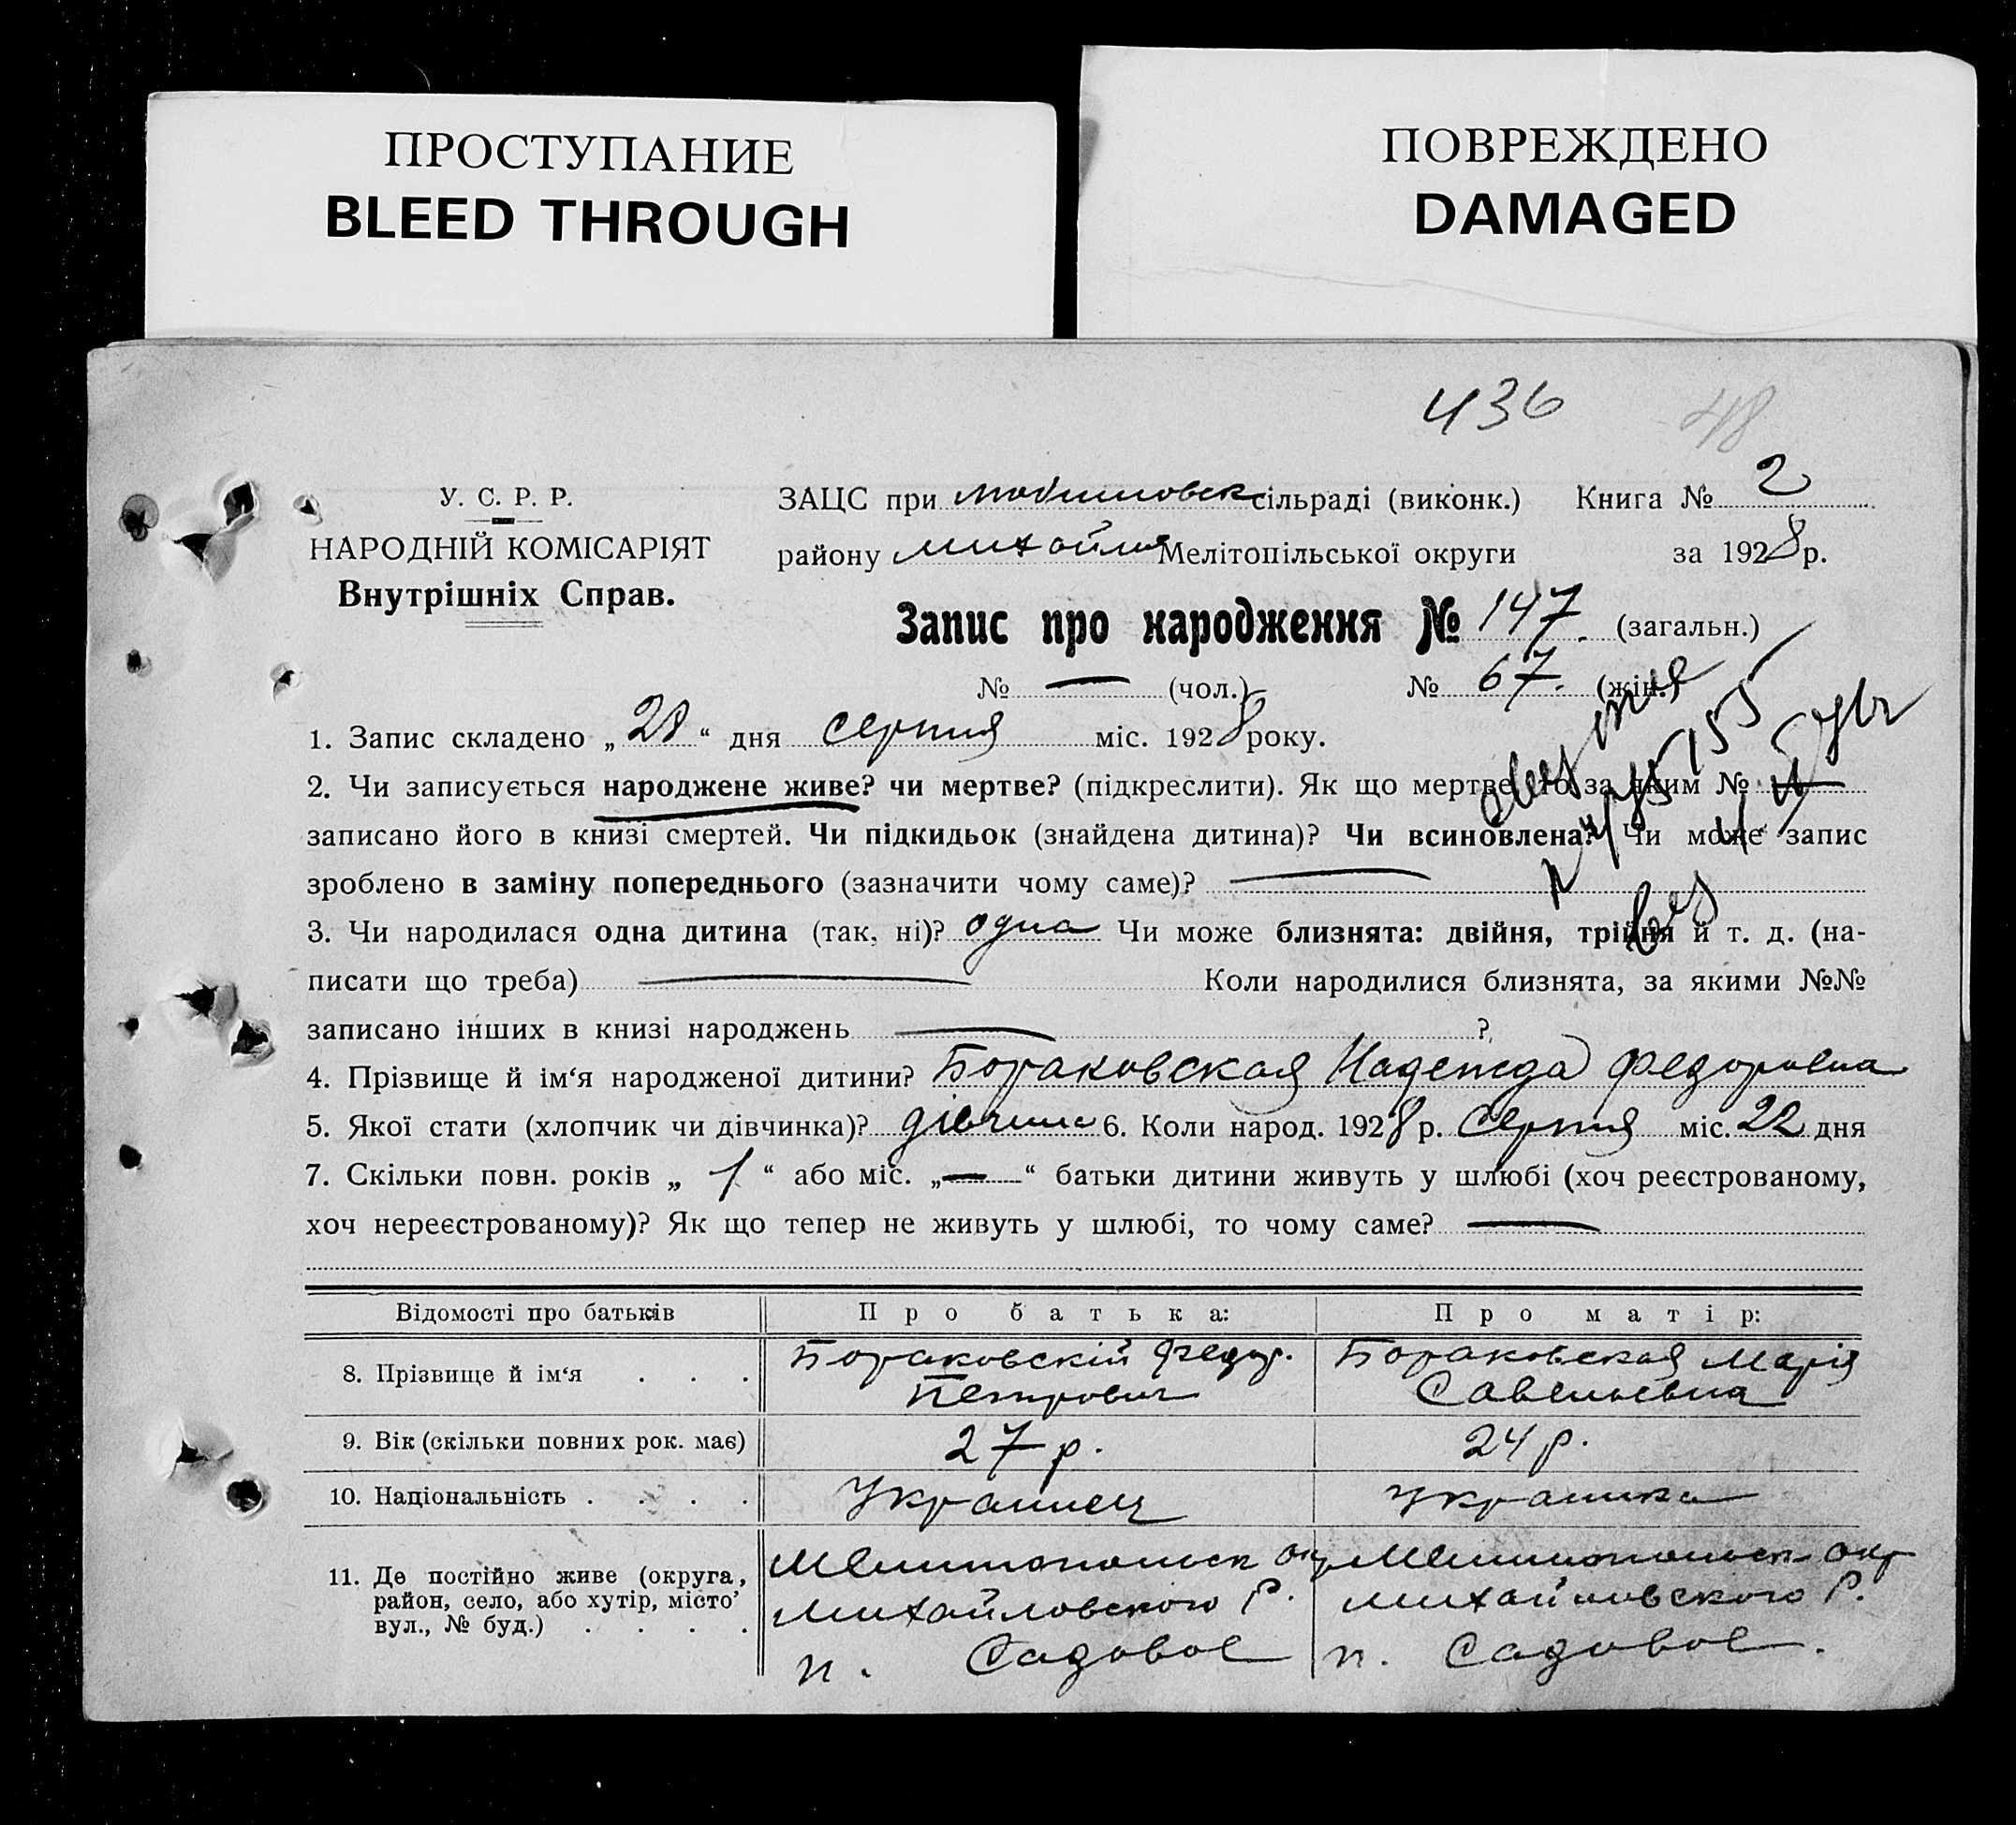 ПРОСТУПАНИЕ
BLEED THROUGH
ПОВРЕЖДЕНО
DAMAGED
436 48
У. С. Р. Р.
НАРОДНІЙ КОМІСАРІЯТ
Внутрішніх Справ.
ЗАЦС при сільраді (виконк.) Книга № 2
району Михайлів Мелітопільської округи за 1928 р.
Запис про народження № 147. (загальн.)
№ — (чол.) № 67. (жін.)
1. Запис складено „28“ дня серпня міс. 1928 року.
2. Чи записується народжене живе? чи мертве? (підкреслити). Як що мертве, то за яким №
записано його в книзі смертей. Чи підкидьок (знайдена дитина)? Чи всиновлена? Чи може запис
зроблено в заміну попереднього (зазначити чому саме)? —
3. Чи народилася одна дитина (так, ні)? одна Чи може близнята: двійня, трійня й т. д. (на-
писати що треба) — Коли народилися близнята, за якими №№
записано інших в книзі народжень — ?
4. Прізвище й ім‘я народженої дитини? Бораковская Надежда Федоровна
5. Якої стати (хлопчик чи дівчинка)? дівчина 6. Коли народ. 1928 р. Серпня міс. 22 дня
7. Скільки повн. років „1“ або міс. „—“ батьки дитини живуть у шлюбі (хоч реєстрованому,
хоч нереєстрованому)? Як що тепер не живуть у шлюбі, то чому саме? —
Відомості про батьків Про батька: Про матір:
8. Прізвище й ім‘я . . . Бораковскій Федор. Бораковская Марія
Петрович Савельевна
9. Вік (скільки повних рок. має) 27 р. 24 р.
10. Національність . . . . Украинец Украинка
11. Де постійно живе (округа, Мелитопольск окр Мелитопольск окр
район, село, або хутір, місто, Михайловского Р. Михайловского Р.
вул., № буд.) . . . . п. Садовое п. Садовое.